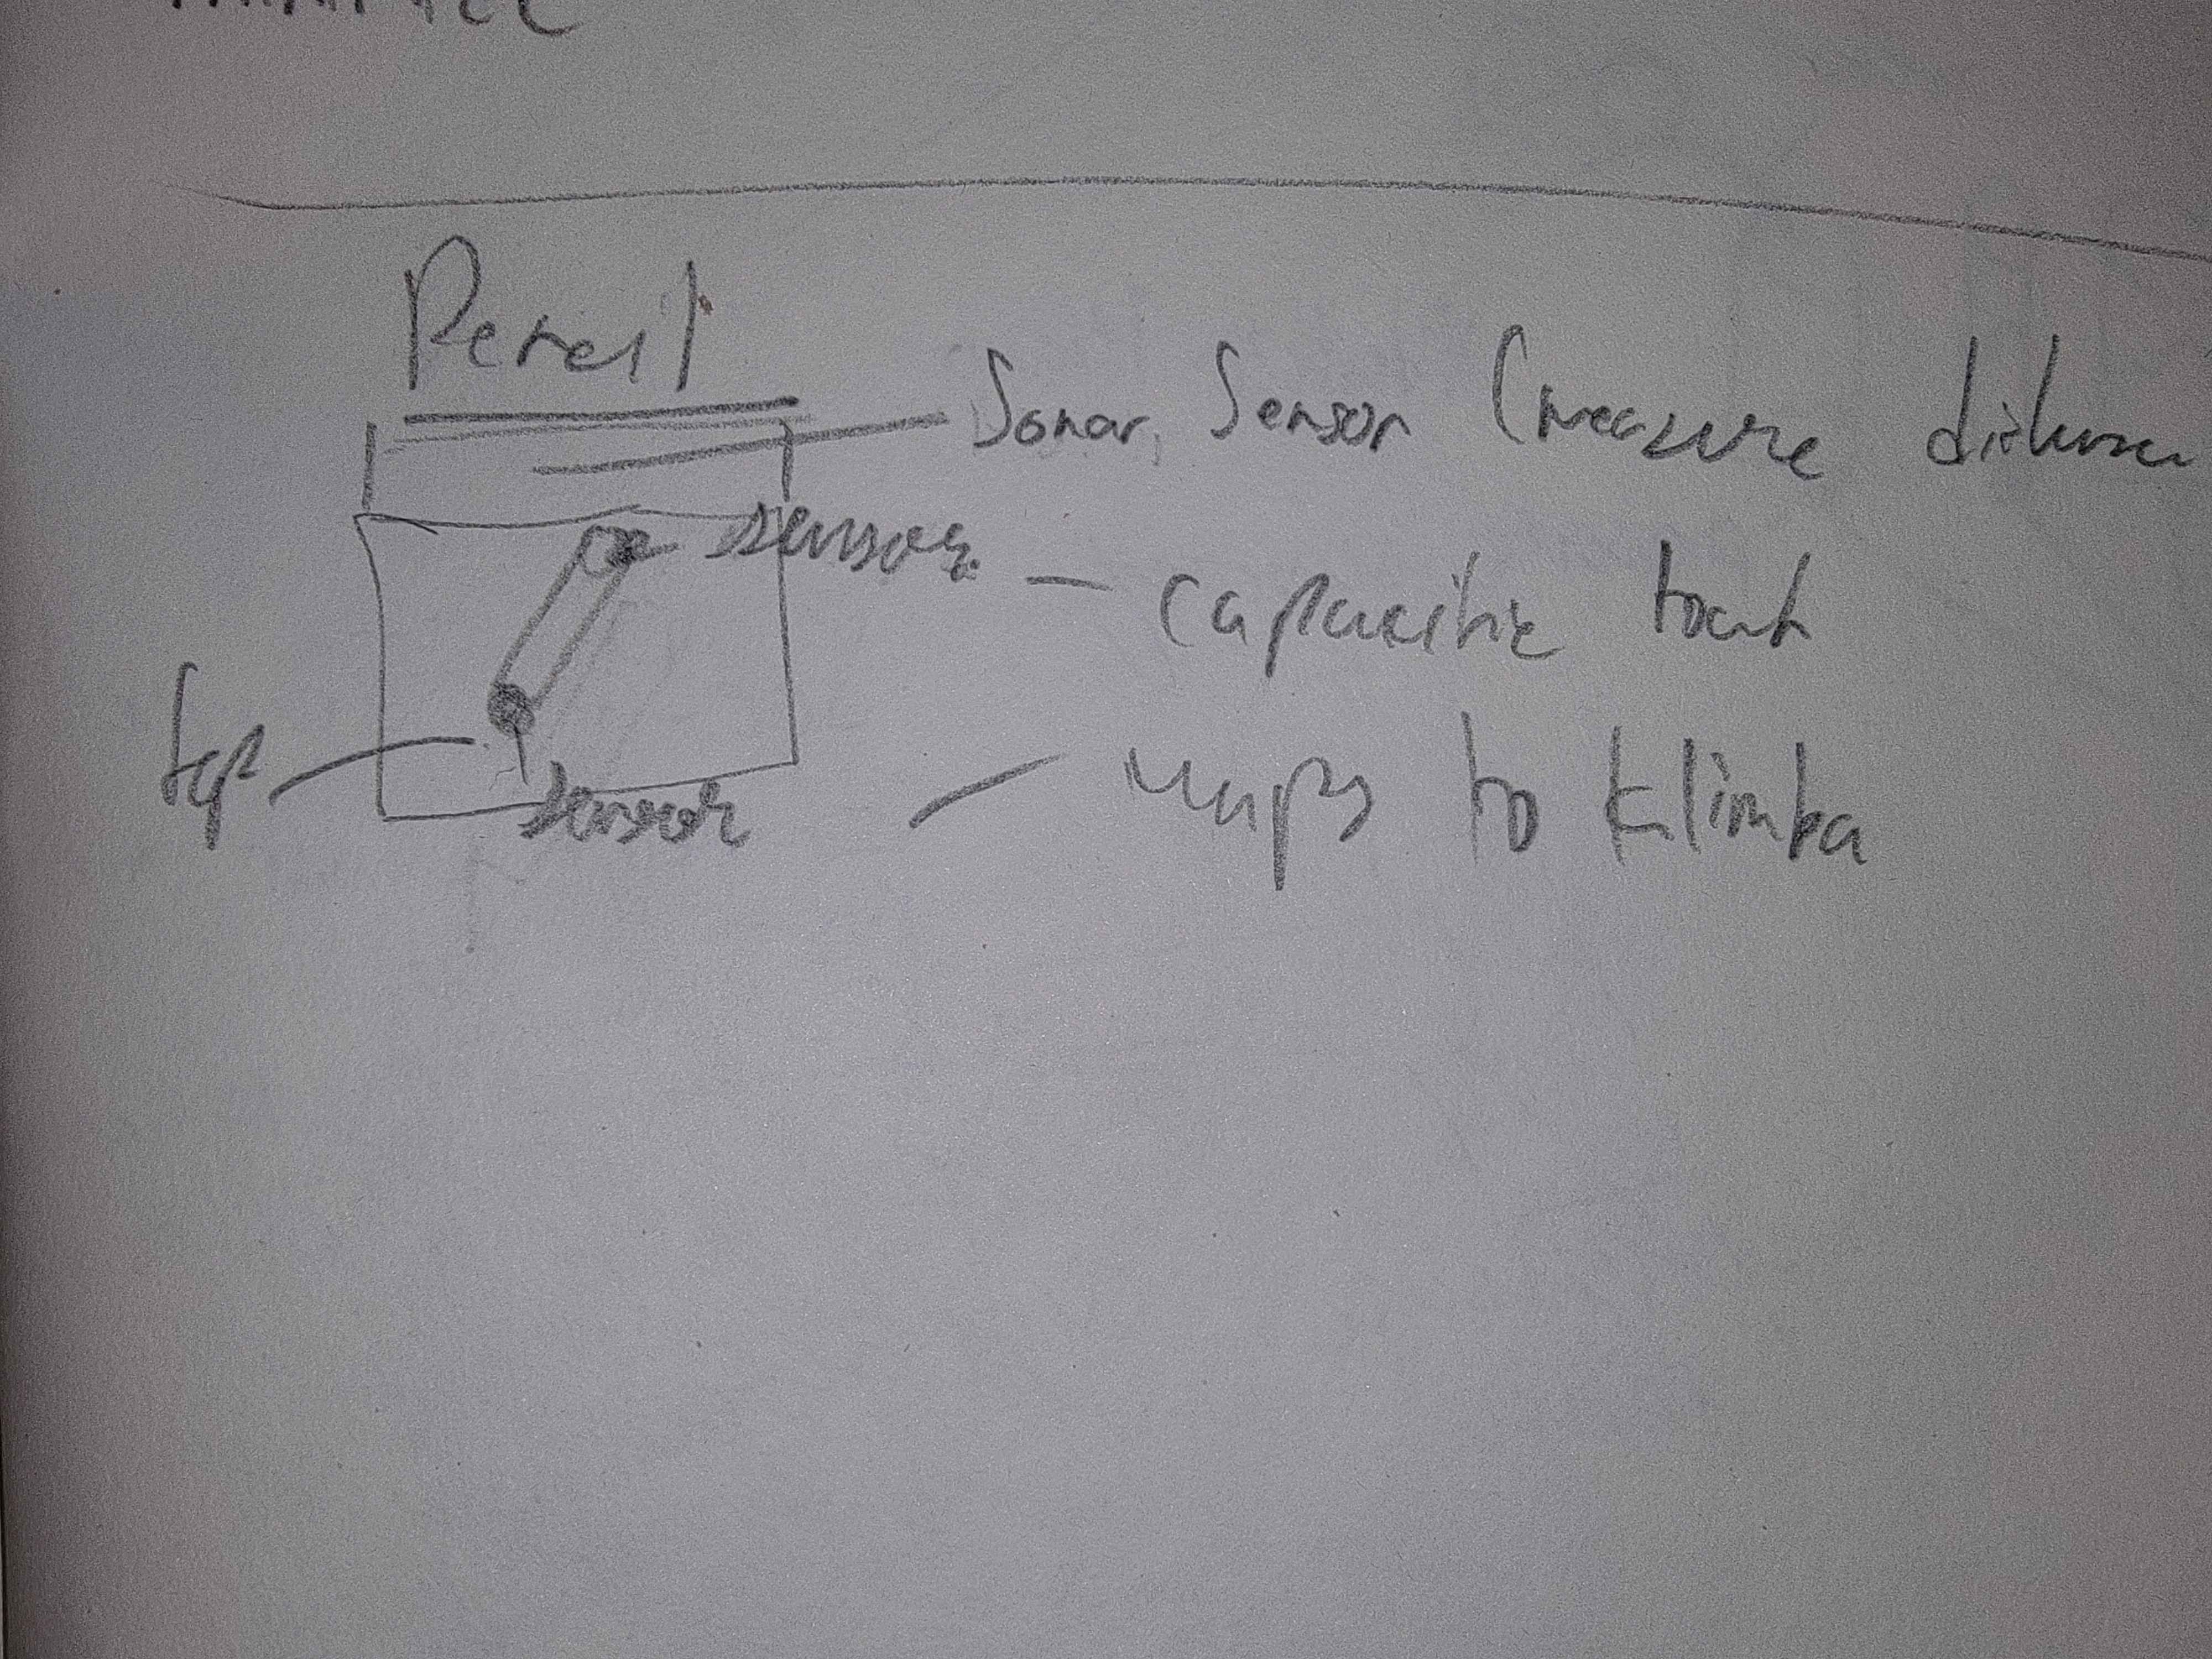 Pencil
Sonar Sensor (measure distance
sensor - capacitive touch
tap
sensor - maps to klimba